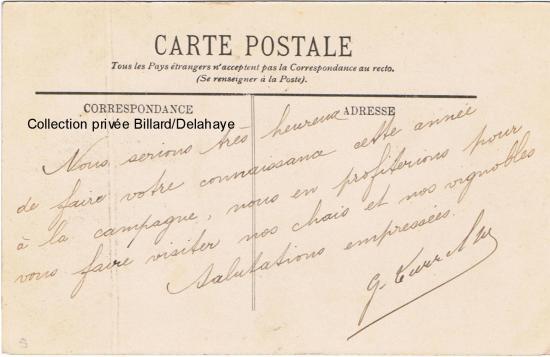 CARTE POSTALE
Tous les Pays étrangers n'acceptent pas la Correspondance au recto.
(Se renseigner à la Poste).
CORRESPONDANCE
ADRESSE
Collection privée Billard/Delahaye
Nous serions très heureux
de faire votre connaissance cette année
à la campagne, nous en profiterions pour
vous faire visiter nos chais et nos vignobles
Salutations empressées.
G.